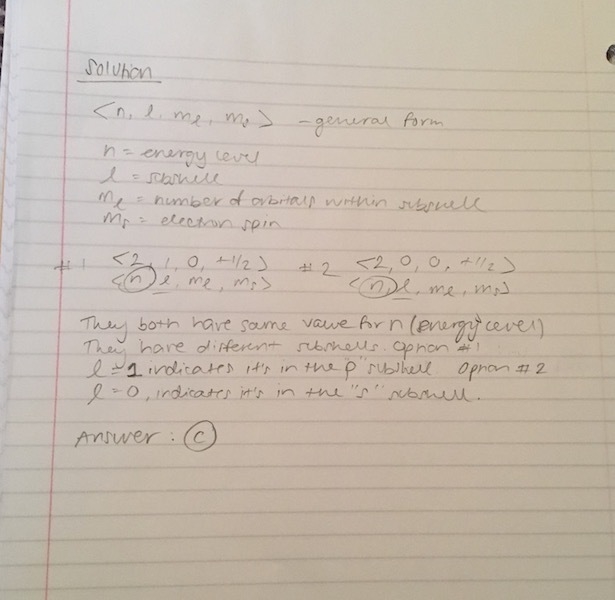 Solution
<n, l, ml, ms> - general form
n = energy level
l = subshell
ml = number of orbitals within subshell
ms = electron spin
#1 <2, 1, 0, +1/2> #2 <2, 0, 0, +1/2>
<n, l, ml, ms> <n, l, ml, ms>
They both have same value for n (energy level)
They have different subshells. Option #1
l = 1 indicates it's in the "p" subshell Option #2
l = 0, indicates it's in the "s" subshell.
Answer: C